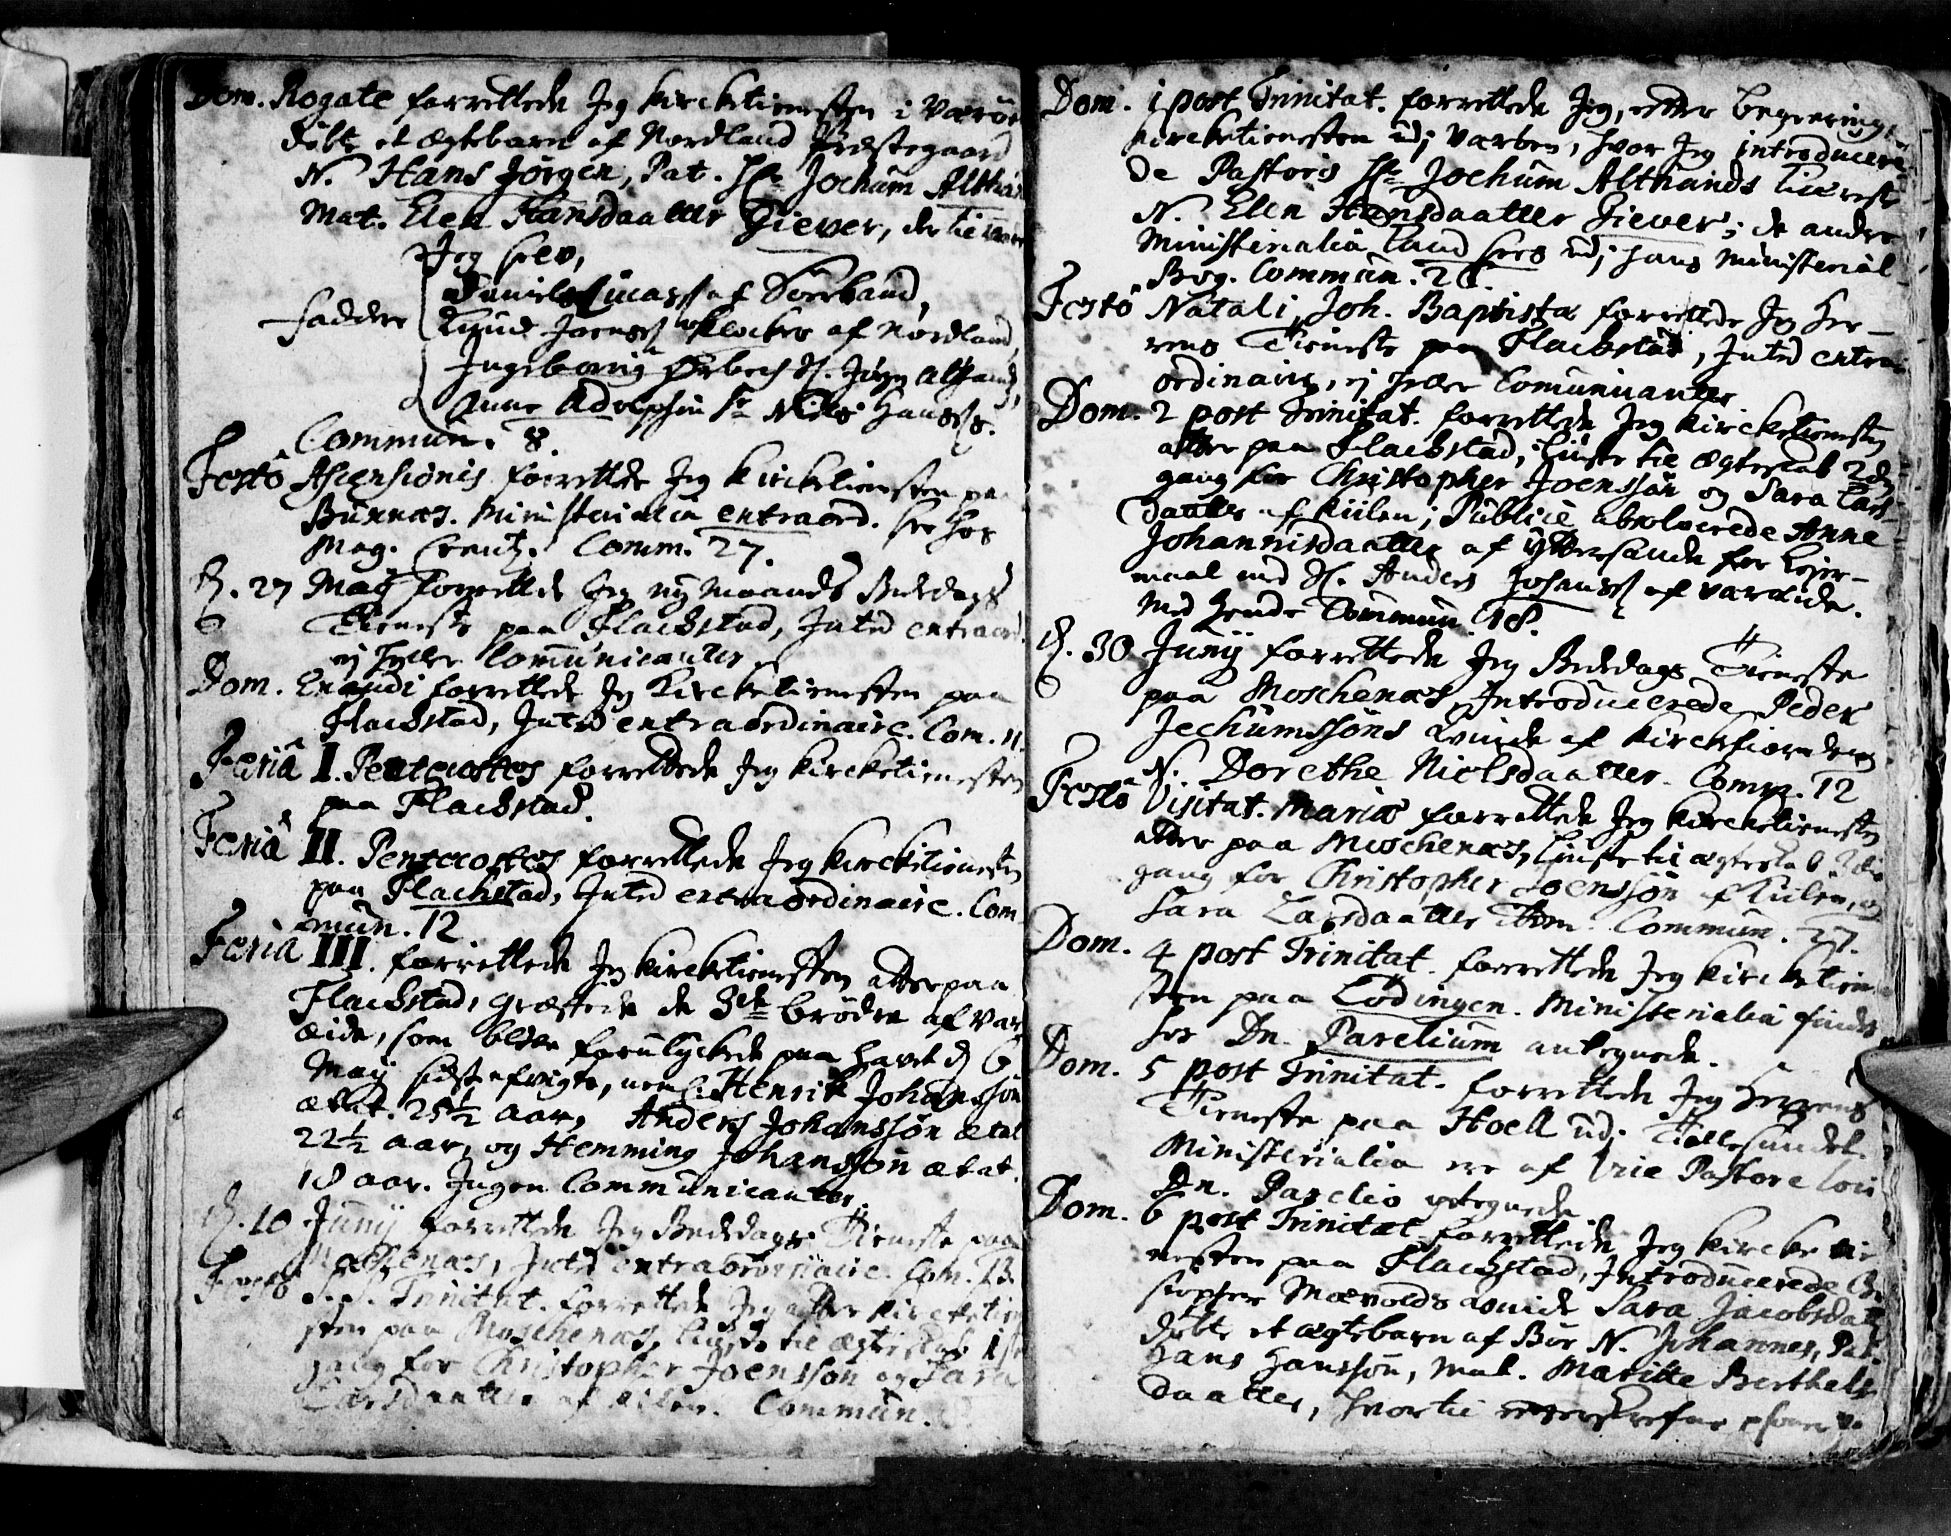 Dom. Rogate forrettede Jeg kircketienesten i Værön
döbte et ægtebarn af Nordland Præstegaard
N. Hans Jörgen, Pat. Hr. Jochum Althan
Mat. Elen Hansdaatter Giever, der til vare
Jeg selv,
Daniel Lucass. af Sörland,
Faddere Knud Joenss. Klocker af Nordland,
Ingeborrig Örbech
Anne Adolphin Sr. Niels Hanss.
Commun. 8.
Festo Ascensionis forrettede Jeg kircketienesten paa
Buxnæs. Ministerialia extraord. see hos
Mag. Creutz. Comm. 27.
D. 27 Maij forrettede Jeg ny Maaneds Bededags
6 Tieneste paa Flackstad, Inted extraord.
ej heller Communicanter
Dom. Exaudi forrettede Jeg kircketienesten paa
Flackstad, Inted extraordinaire. Com. 11.
Feria I. Pentecostes forrettede Jeg kircketienesten
paa Flackstad.
Feria II. Pentecostes forrettede Jeg kircketienesten
paa Flackstad, Inted extraordinaire. Com
mun. 12
Feria III. forrettede Jeg kircketienesten atter paa
Flackstad, græstede de 3de brödre af Var
æide, som bleve forulyckede paa havet d. 6
Maij sidst afvigte, neml: Henrik Johanssön
ætat. 25½ aar, Anders Johanssön ætat
22½ aar, og Hemming Johanssön ætat.
18 aar. Ingen Communicanter.
D. 10 Junij forrettede Jeg Bededags Tieneste paa
Moschenæs, Inted extraordinaire. Com. 13.
Festo S. S. Trinitat. forrettede Jeg atter kircketiene
sten paa Moschenæs, liuste til ægteskab 1ste
gang for Christopher Joenssön og Sara
Larsdaatter af Kiilen. Commun.
Dom. 1 post Trinitat. forrettede Jeg, efter begæring,
kircketienesten udj Varöen, hvor Jeg introducere
de Pastoris Hr. Jochum Althands kiæreste
N. Elen Hansdaatter Giever; de andre
Ministerialia fand sees udj hans Ministerial
Bog. Commun. 26.
Festo Natali Joh. Baptistæ forrettede Jeg Her-
rens Tieneste paa Flackstad, Inted extra
ordinaire, ej heller Communicanter
Dom. 2 post Trinitat. forrettede Jeg kircketienesten
atter paa Flackstad, liuste til ægteskab 2den
gang for Christopher Joenssön og Sara Lars-
daatter af Kiilen; Publice absolverede Anne
Johannisdaatter af Yttersande for Lejer-
maal med Anders Johanss. af Varæide.
Med hende Commun. 18.
D. 30 Junij forrettede Jeg Bededags Tieneste
6 paa Moschenæs, Introducerede Peder
Jochumssöns Qvinde af Kirckfiorden
N. Dorethe Nielsdaatter. Comm. 12
Festo Visitat. Mariæ forrettede Jeg kircketienesten
atter paa Moschenæs, liuste til ægteskab 3die
gang for Christopher Joenssön af Kiilen, og
Sara Larsdaatter Commun. 27.
Dom. 4 post Trinitat. forrettede Jeg kircketiene
sten paa Lödingen. Ministerialia findes
hos Dn. Parelium antegnede.
Dom. 5 post Trinitat. forrettede Jeg Herrens
Tieneste paa Hoell udj Tiellesundet.
Ministerialia ere af Vice Pastore loci
Dn. Parelio optegnede
Dom. 6 post Trinitat forrettede Jeg kircke tie
nesten paa Flackstad, Introducerede Chri
stopher Mævolds Qvinde Sara Jacobsdatt
döbte et ægtebarn af Böe N. Johannes, Pat.
Hans Hanssön, Mat. Maritte Berthels
daatter, hvortil